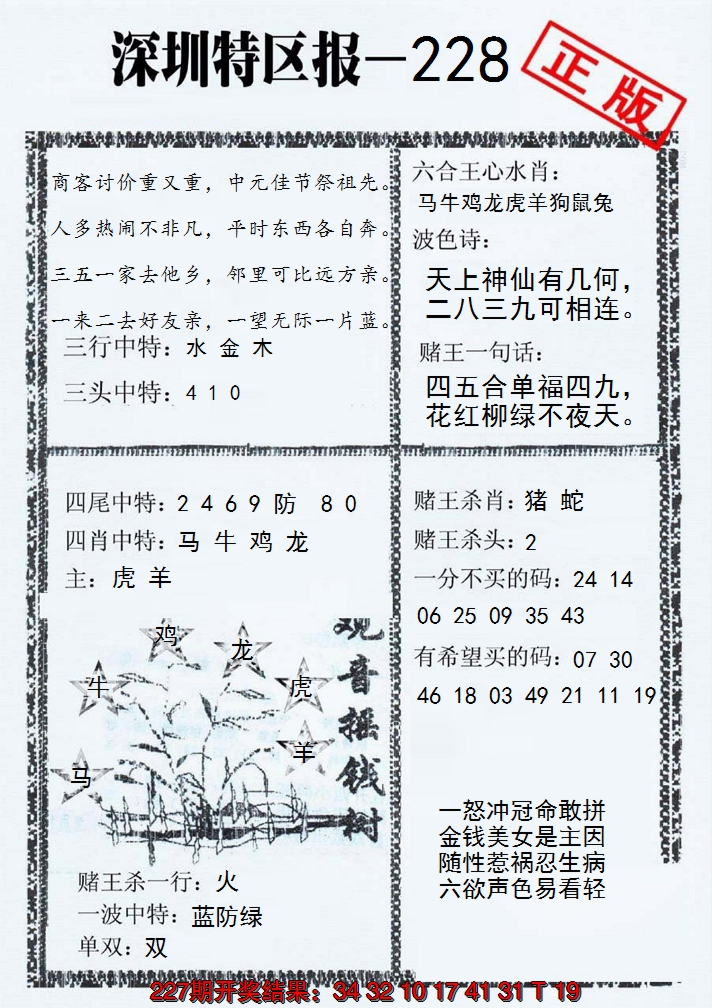 深圳特区报—228
正版
商客讨价重又重，中元佳节祭祖先。
人多热闹不非凡，平时东西各自奔。
三五一家去他乡，邻里可比远方亲。
一来二去好友亲，一望无际一片蓝。
三行中特：水 金 木
三头中特：4 1 0
六合王心水肖：
马牛鸡龙虎羊狗鼠兔
波色诗：
天上神仙有几何，
二八三九可相连。
赌王一句话：
四五合单福四九，
花红柳绿不夜天。
四尾中特：2 4 6 9 防 8 0
四肖中特：马 牛 鸡 龙
主：虎 羊
鸡
龙
牛
虎
羊
马
观音摇钱树
赌王杀一行：火
一波中特：蓝防绿
单双：双
赌王杀肖：猪 蛇
赌王杀头：2
一分不买的码：24 14
06 25 09 35 43
有希望买的码：07 30
46 18 03 49 21 11 19
一怒冲冠命敢拼
金钱美女是主因
随性惹祸忍生病
六欲声色易看轻
227期开奖结果：34 32 10 17 41 31 T 19